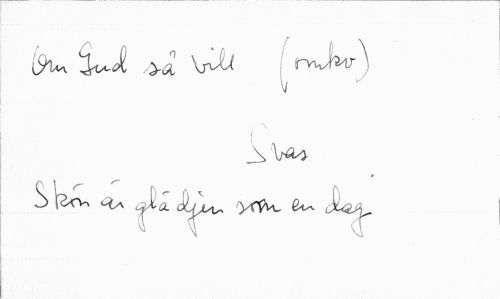 Om Gud så vill (omkv)
Svas
Skön är glädjen som en dag